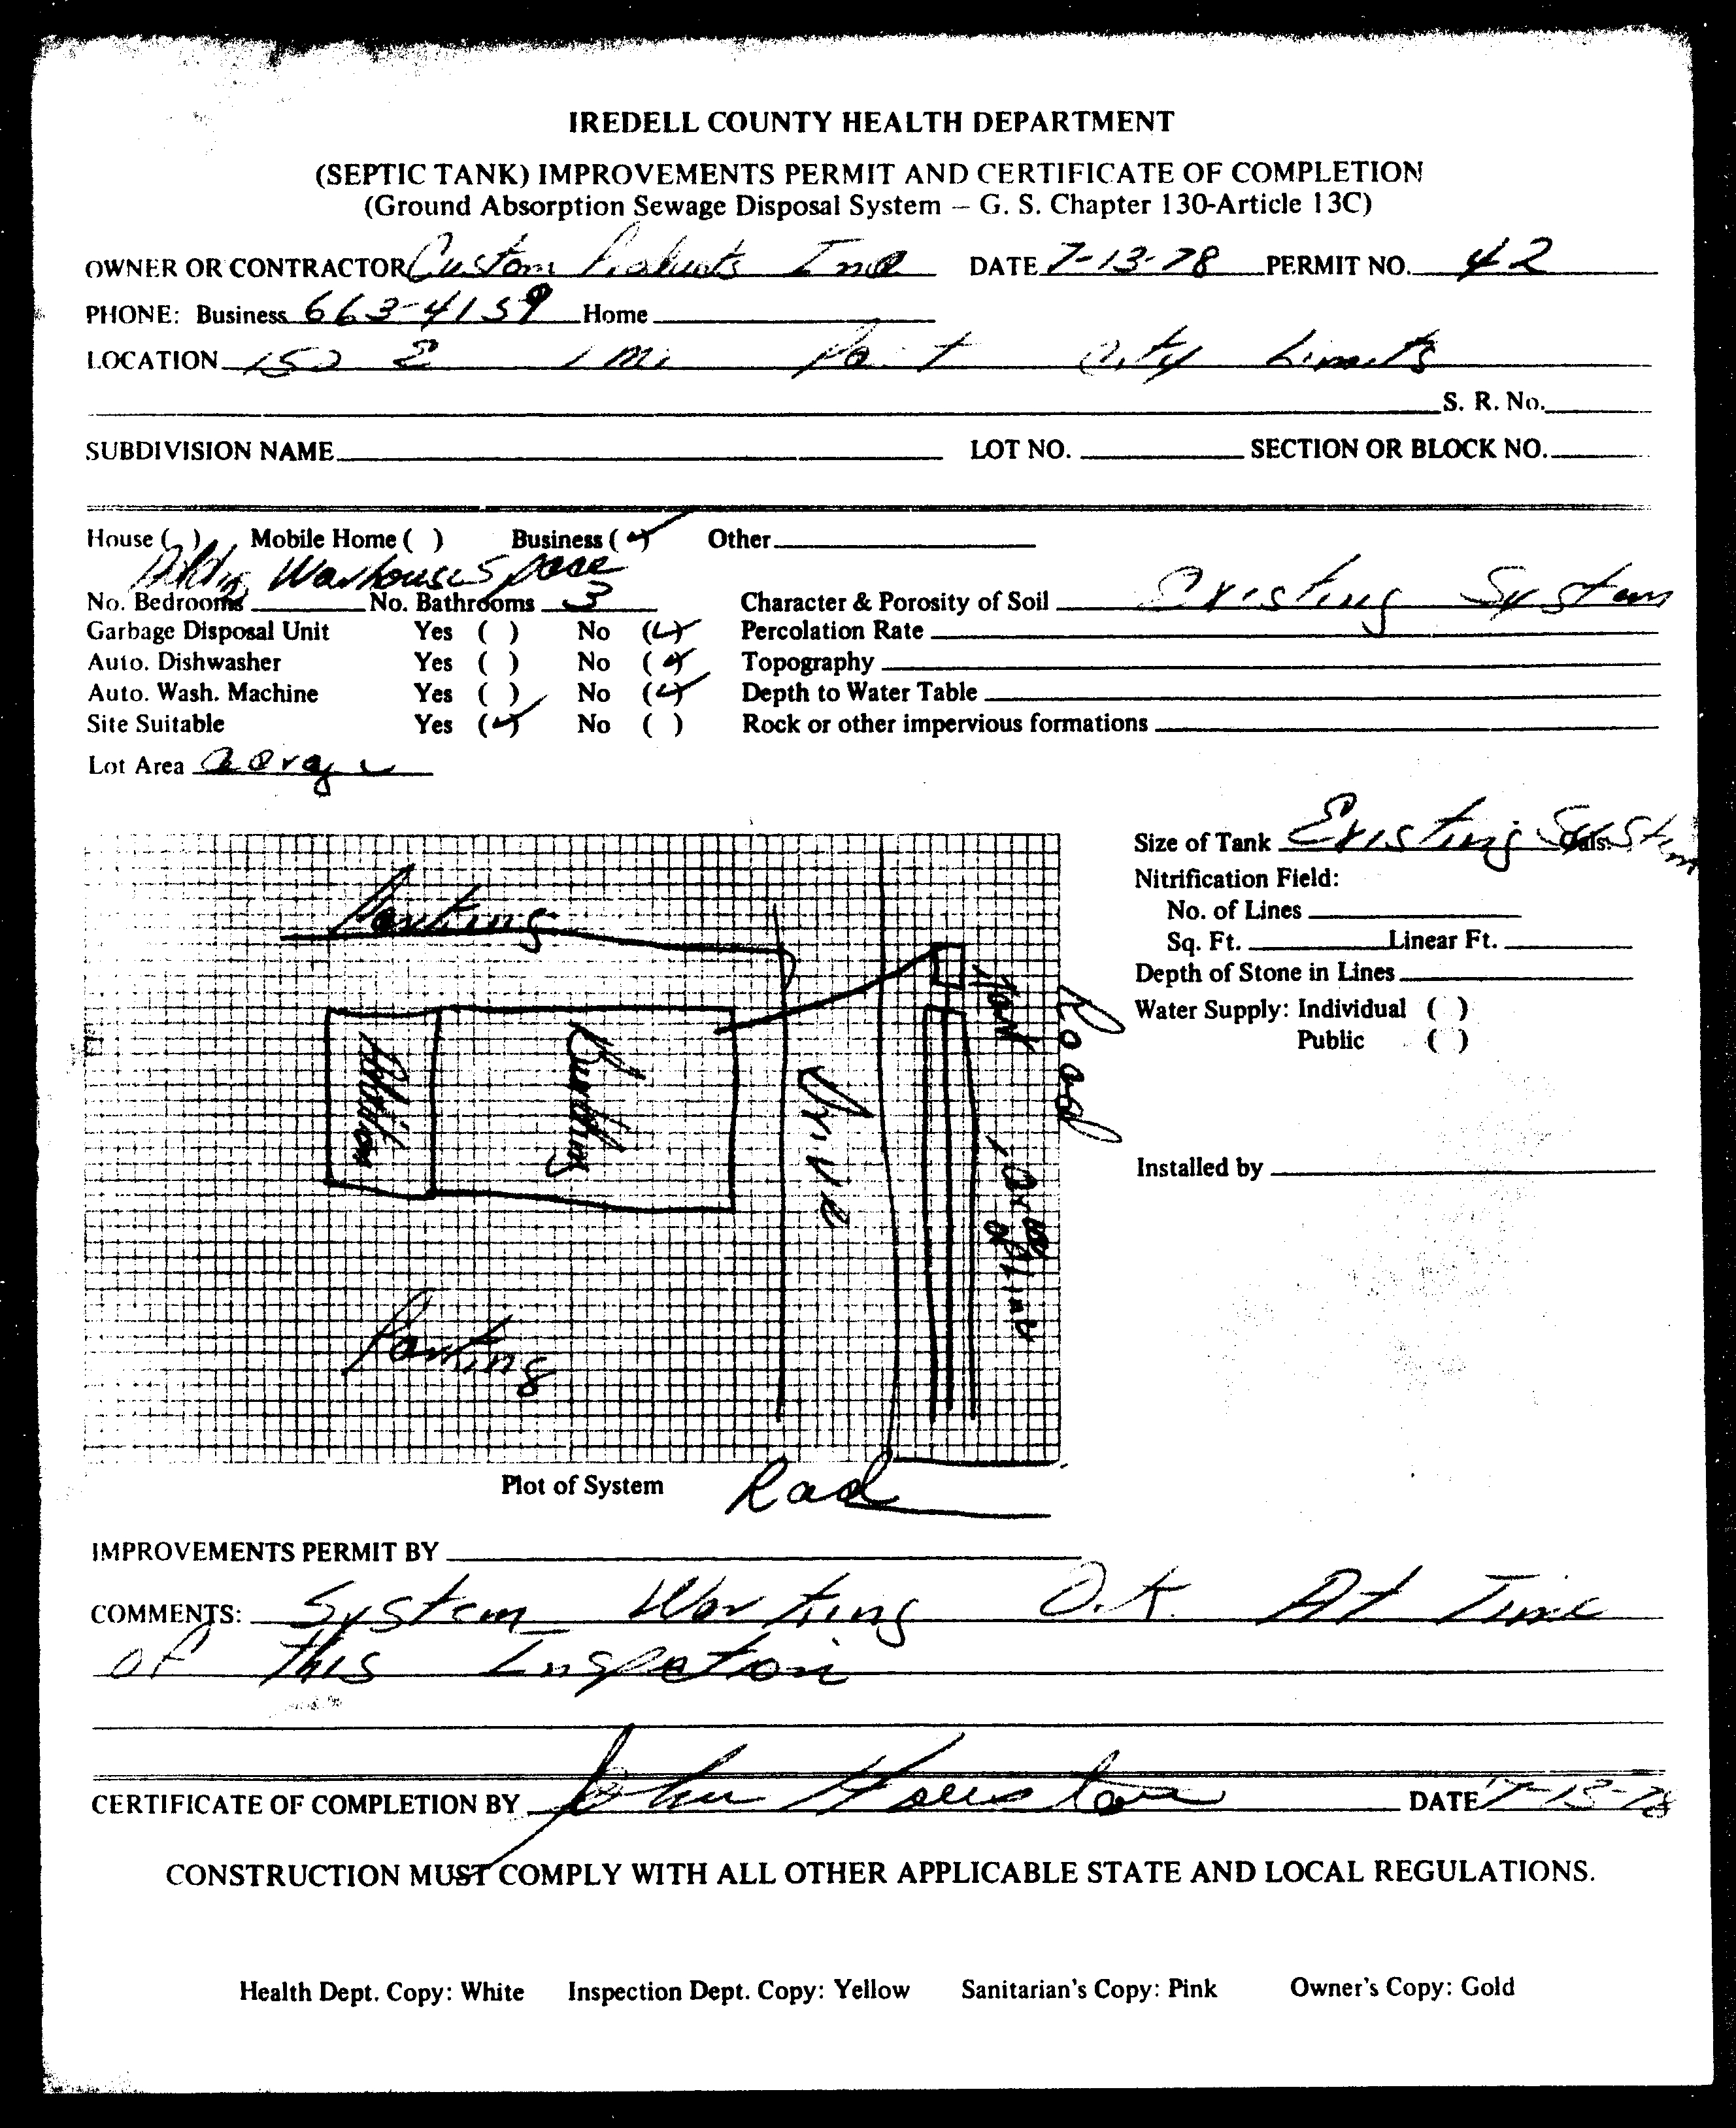 IREDELL COUNTY HEALTH DEPARTMENT
(SEPTIC TANK) IMPROVEMENTS PERMIT AND CERTIFICATE OF COMPLETION
(Ground Absorption Sewage Disposal System – G. S. Chapter 130-Article 13C)
OWNER OR CONTRACTOR Custom Products Inc DATE 7-13-78 PERMIT NO. 42
PHONE: Business 663-4159 Home
LOCATION 150 E 1 mi Past City Limits
S. R. No.
SUBDIVISION NAME LOT NO. SECTION OR BLOCK NO.
House ( ) Mobile Home ( ) Business (✓) Other
Warhouse Space
No. Bedrooms No. Bathrooms 3 Character & Porosity of Soil Existing System
Garbage Disposal Unit Yes ( ) No (✓) Percolation Rate
Auto. Dishwasher Yes ( ) No (✓) Topography
Auto. Wash. Machine Yes ( ) No (✓) Depth to Water Table
Site Suitable Yes (✓) No ( ) Rock or other impervious formations
Lot Area
Size of Tank Existing System Gals.
Nitrification Field:
No. of Lines
Sq. Ft. Linear Ft.
Depth of Stone in Lines
Water Supply: Individual ( )
Public ( )
Installed by
Parking
Addition
Building
Drive
Tank
Road
Parking
Plot of System
Road
IMPROVEMENTS PERMIT BY
COMMENTS: System Working O.K. At Time
of This Inspetion
CERTIFICATE OF COMPLETION BY John Houston DATE 7-13-78
CONSTRUCTION MUST COMPLY WITH ALL OTHER APPLICABLE STATE AND LOCAL REGULATIONS.
Health Dept. Copy: White Inspection Dept. Copy: Yellow Sanitarian's Copy: Pink Owner's Copy: Gold